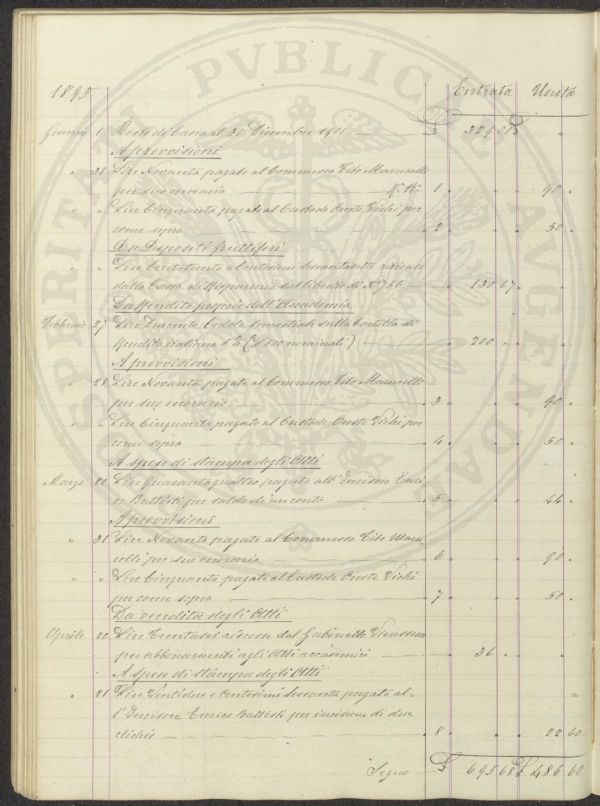 PROSPERITATI PVBLICAE AVGENDAE
1895 Entrata Uscita
Gennaio 1 Resto di Cassa al 31 Dicembre £ 329 01 £ "
A provvisioni
" 31 Lire Novanta pagate al Commesso Tito Marucelli
per suo onorario 1 90 "
" " Lire Cinquanta pagate al Custode Oreste Vichi per
come sopra 2 50 "
Da Depositi fruttiferi
" " Lire Centotrenta e Centesimi sessantasette ritirate
dalla Cassa di Risparmio sul libretto di 130 67
Da Rendite proprie dell'Accademia
Febbraio 27 Lire Duecento Cedola semestrale sulla Cartella di
Rendita italiana 5% 200 "
A provvisioni
" 28 Lire Novanta pagate al Commesso Tito Marucelli
per suo onorario 3 90 "
" " Lire Cinquanta pagate al Custode Oreste Vichi per
come sopra 4 50 "
A spese di stampa degli Atti
Marzo 20 Lire Quarantaquattro pagate all'Incisore Enri
co Battisti per saldo di un conto 5 44 "
A provvisioni
" 31 Lire Novanta pagate al Commesso Tito Maru
celli per suo onorario 6 90 "
" " Lire Cinquanta pagate al Custode Oreste Vichi
per come sopra 7 50 "
Da vendita degli Atti
Aprile 20 Lire Trentasei riscosse dal Gabinetto Vieusseux
per abbonamenti agli Atti accademici 36 "
A spese di stampa degli Atti
" 21 Lire Ventidue e Centesimi Sessanta pagate al
l'Incisore Enrico Battisti per incisione di due
clichés 8 22 60
Segue £ 695 68 £ 486 60